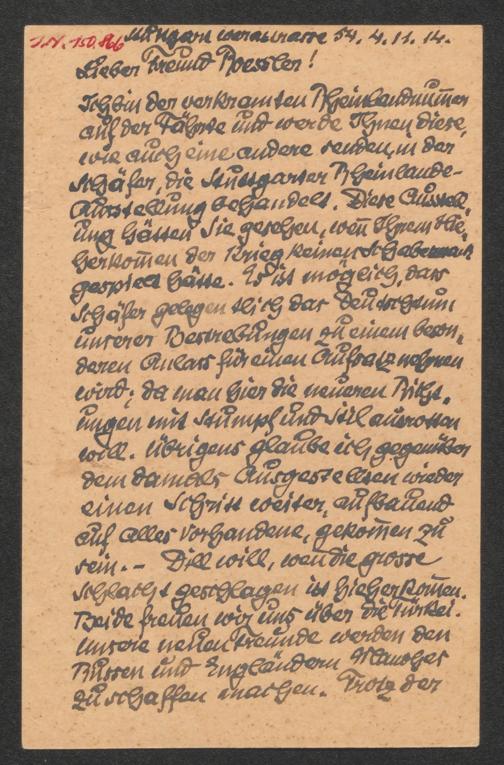 I.N. 150.866
Stuttgart Werastrasse 54. 4.11.14.
Lieber Freund Roessler!
Ich bin der verkramten Rheinlandnum̄er
auf der Fährte und werde Ihnen diese,
wie auch eine andere senden, in der
Schäfer, die Stuttgarter Rheinlande-
Ausstellung behandelt. Diese Ausstell-
ung hätten Sie gesehen, wen̄ Ihrem Hie-
herkom̄en der Krieg keinen Schabernack
gespielt hätte. Es ist möglich, dass
Schäfer gelegentlich das Deutschtum
unserer Bestrebungen zu einem beson-
deren Anlass für einen Aufsatz nehmen
wird; da man hier die neueren Richt-
ungen mit Stumpf und Stil ausrotten
will. Übrigens glaube ich gegenüber
dem damals Ausgestellten wieder
einen Schritt weiter, aufbauend
auf alles Vorhandene, gekom̄en zu
sein. – Dill will, wen̄ die grosse
Schlacht geschlagen ist hieherkom̄en.
Beide freuen wir uns über die Türkei.
Unsere neuen Freunde werden den
Russen und Engländern Manches
zu schaffen machen. Trotz der